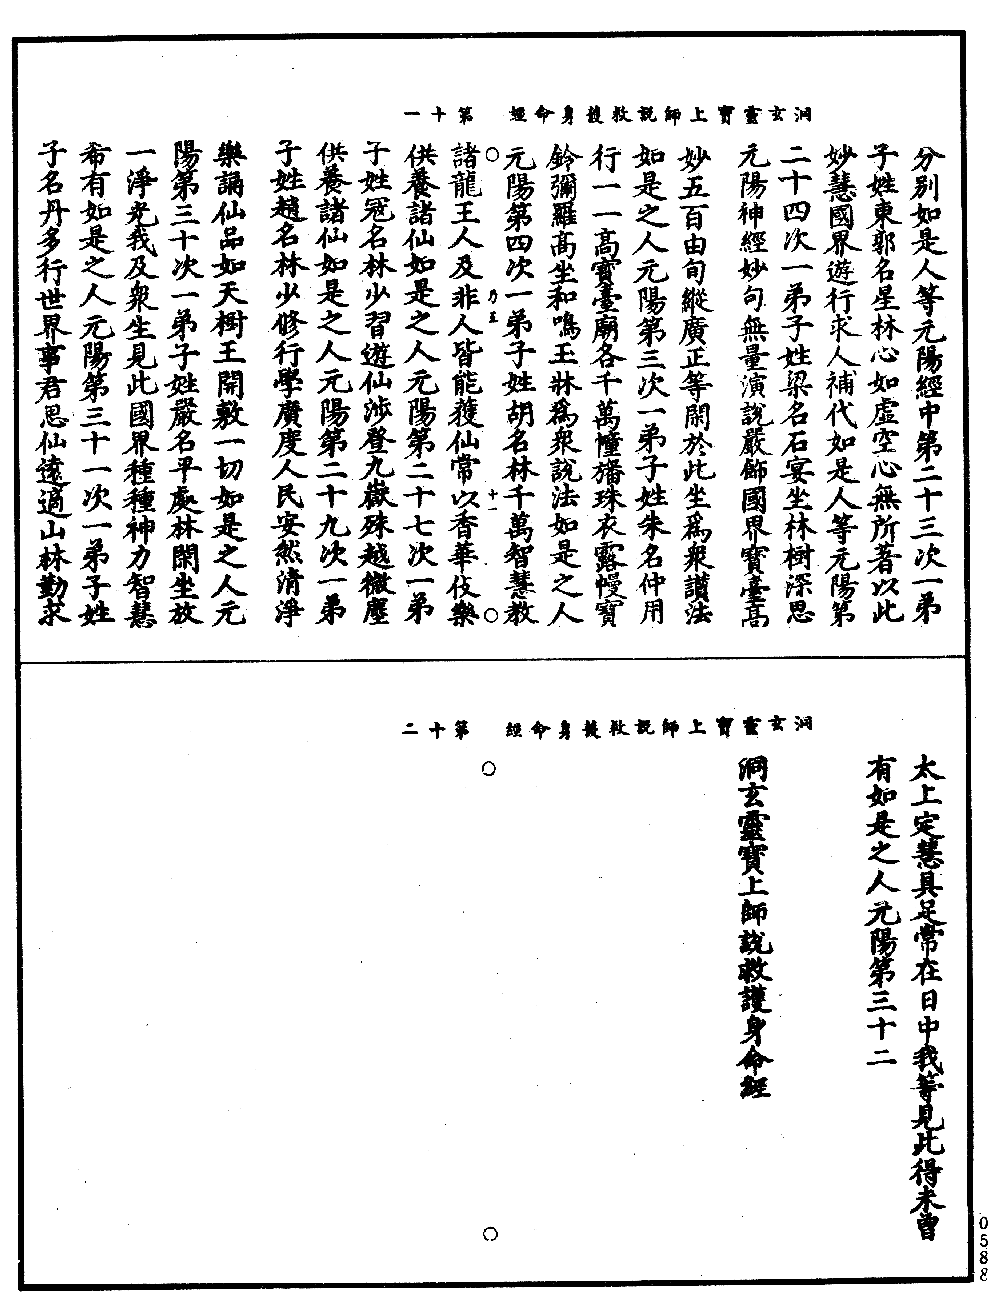 洞玄靈寶上師說救護身命經　第十一
分別如是人等元陽經中第二十三次一弟
子姓東郭名星林心如虛空心無所著以此
妙慧國界遊行求人補代如是人等元陽第
二十四次一弟子姓梁名石宴坐林樹深思
元陽神經妙句無量演說嚴飾國界寶臺高
妙五百由旬縱廣正等閑於此坐為衆讃法
如是之人元陽第三次一弟子姓朱名仲用
行一一高寶臺廟各千萬幢旛珠衣露幔寶
鈴彌羅高坐和鳴玉牀為衆說法如是之人
元陽第四次一弟子姓胡名林千萬智慧教
乃五　十一
諸龍王人及非人皆能獲仙常以香華伎樂
供養諸仙如是之人元陽第二十七次一弟
子姓冠名林少習遊仙涉登九嶽殊越微塵
供養諸仙如是之人元陽第二十九次一弟
子姓趙名林少修行學廣度人民安然清淨
樂誦仙品如天樹王開敷一切如是之人元
陽第三十次一弟子姓嚴名平處林閑坐放
一淨光我及衆生見此國界種種神力智慧
希有如是之人元陽第三十一次一弟子姓
子名丹多行世界事君思仙遠適山林勤求
洞玄靈寶上師說救護身命經　第十二
太上定慧具足常在日中我等見此得未曾
有如是之人元陽第三十二
洞玄靈寶上師說救護身命經
0588